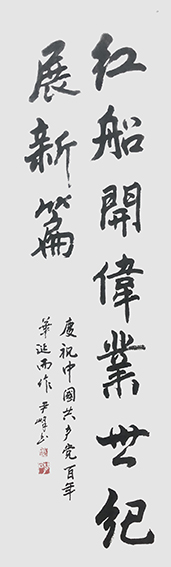 红船開偉業世纪
展新篇
慶祝中國共产党百年
華诞而作 尹峰书